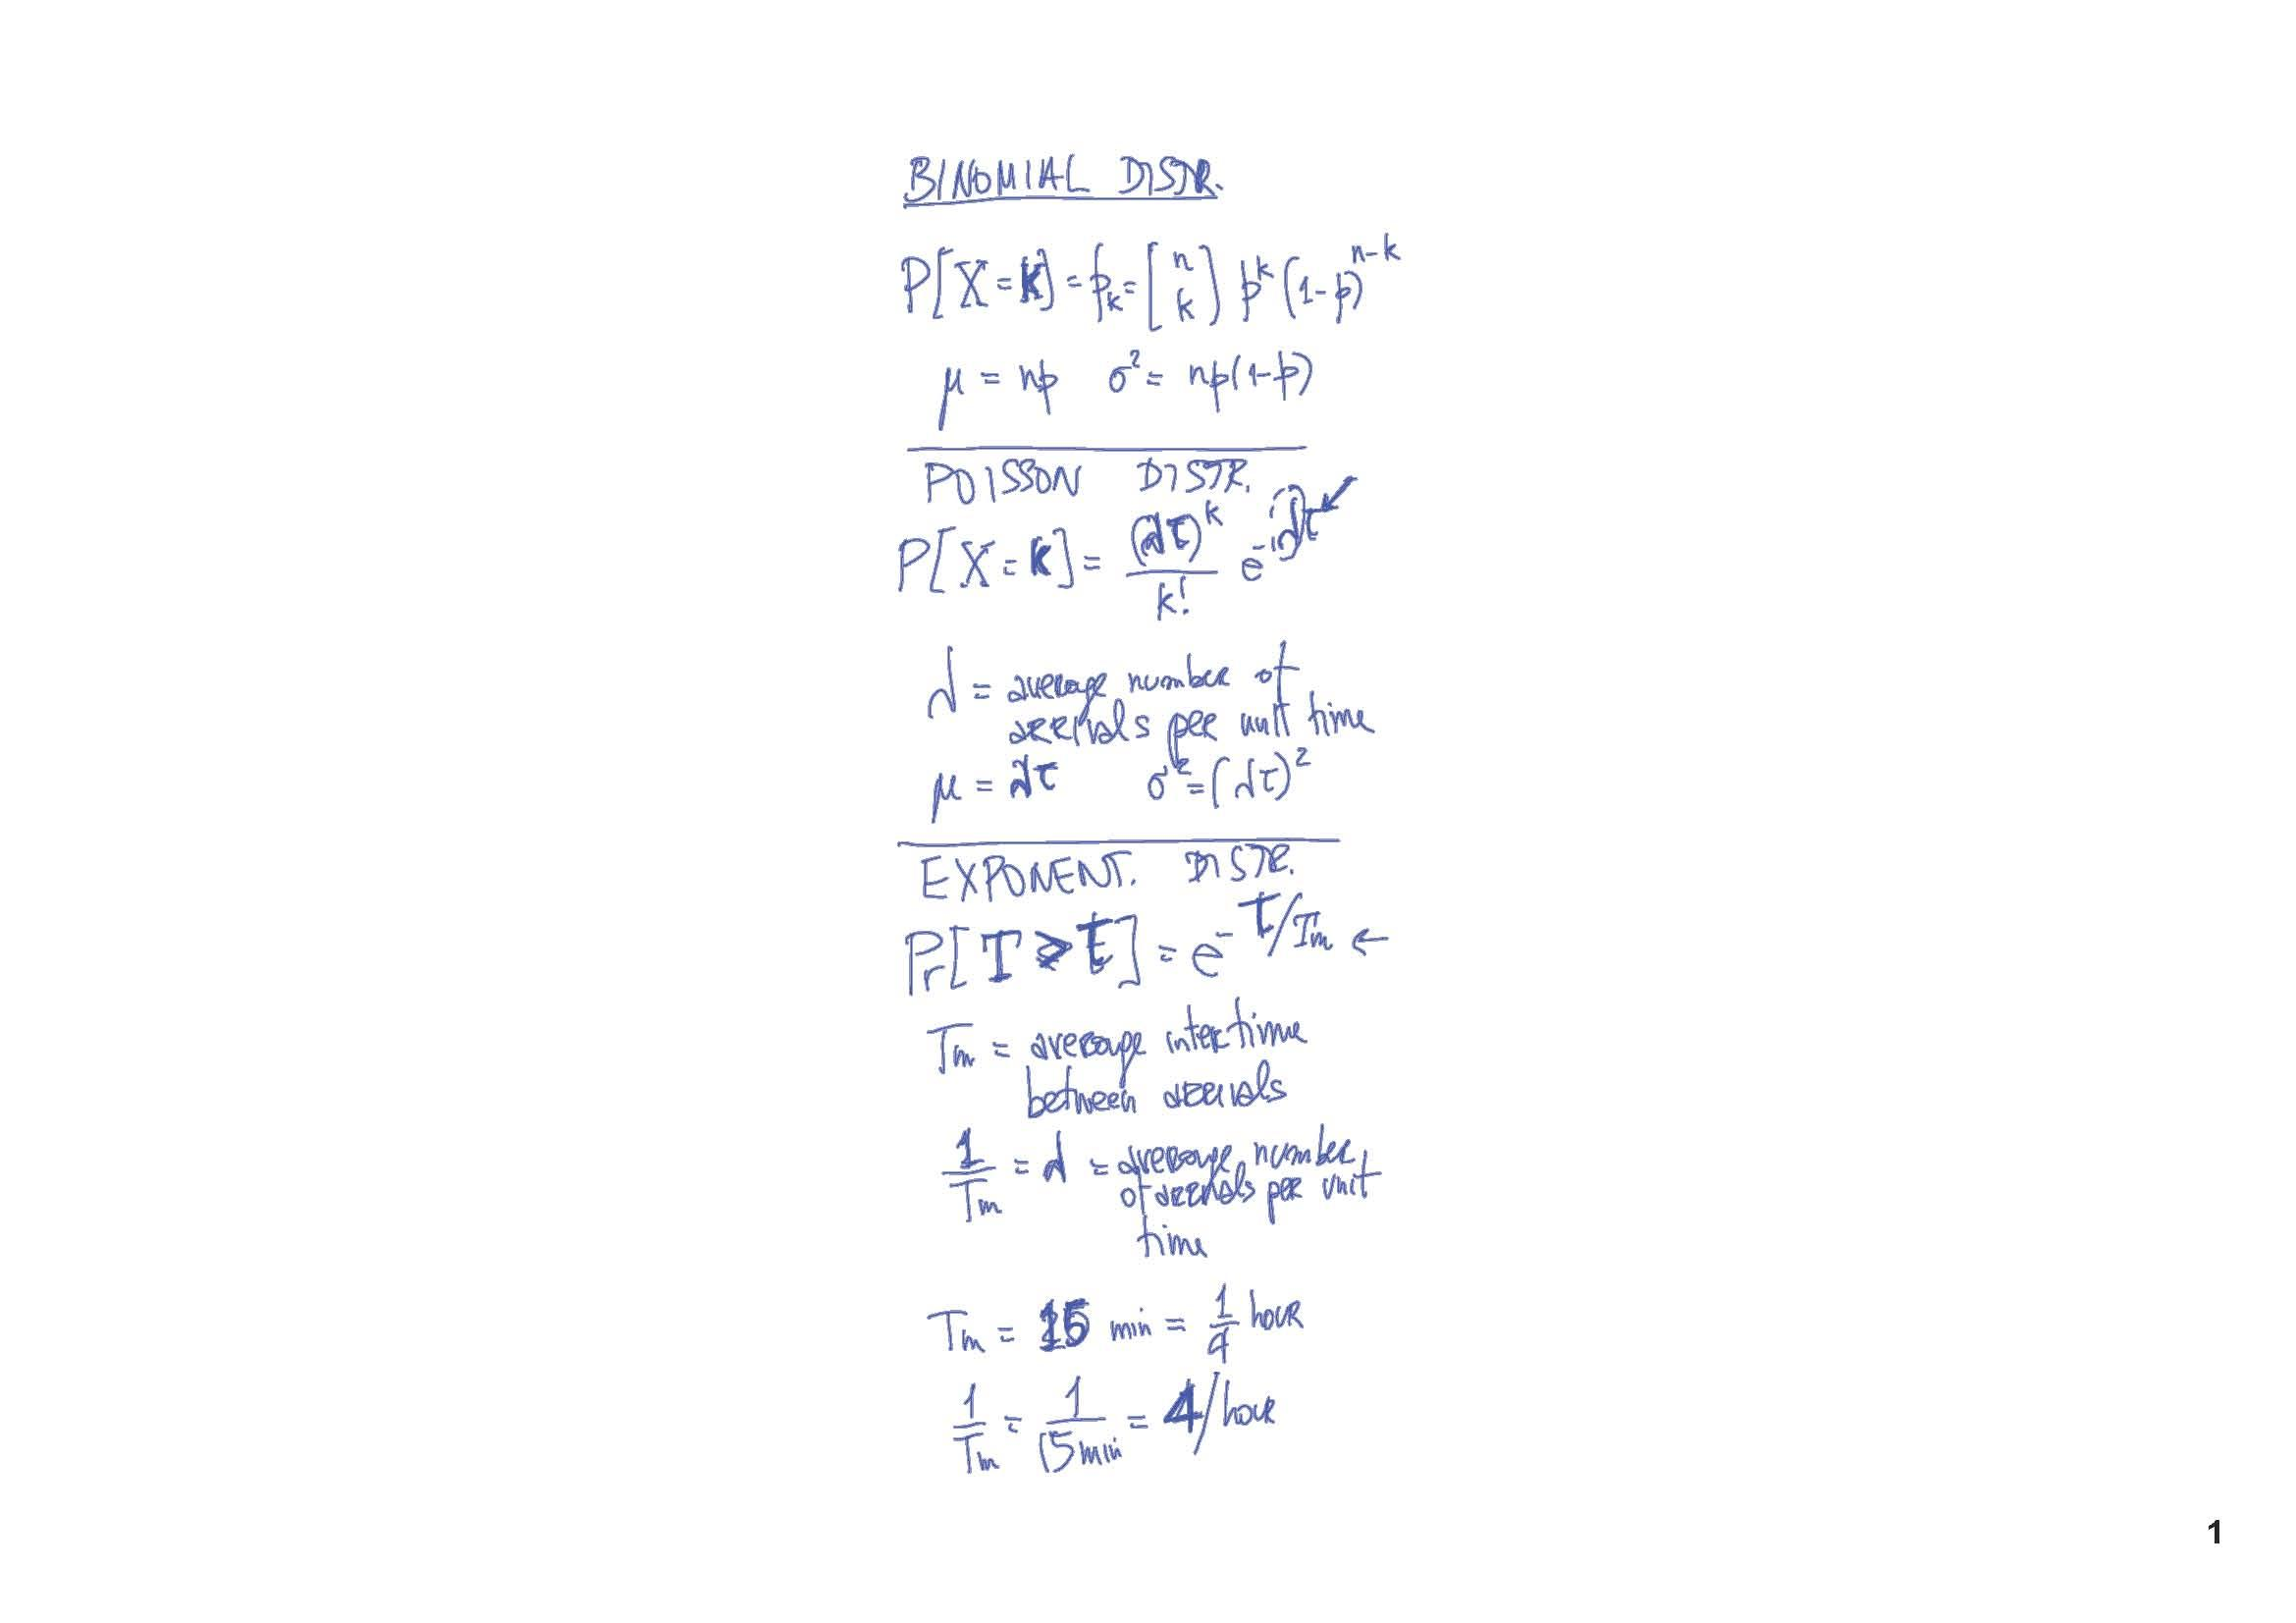 BINOMIAL DISTR.
P[X=K] = p_k = [n k] p^k (1-p)^(n-k)
μ = np σ² = np(1-p)
POISSON DISTR.
P[X=K] = (λτ)^k / k! e^(-λτ)
λ = average number of
arrivals per unit time
μ = λτ σ² = (λτ)²
EXPONENT. DISTR.
Pr[T ≥ t] = e^(-t/Tm) ←
Tm = average intertime
between arrivals
1/Tm = λ = average number
of arrivals per unit
time
Tm = 15 min = 1/4 hour
1/Tm = 1/15 min = 4/hour
1